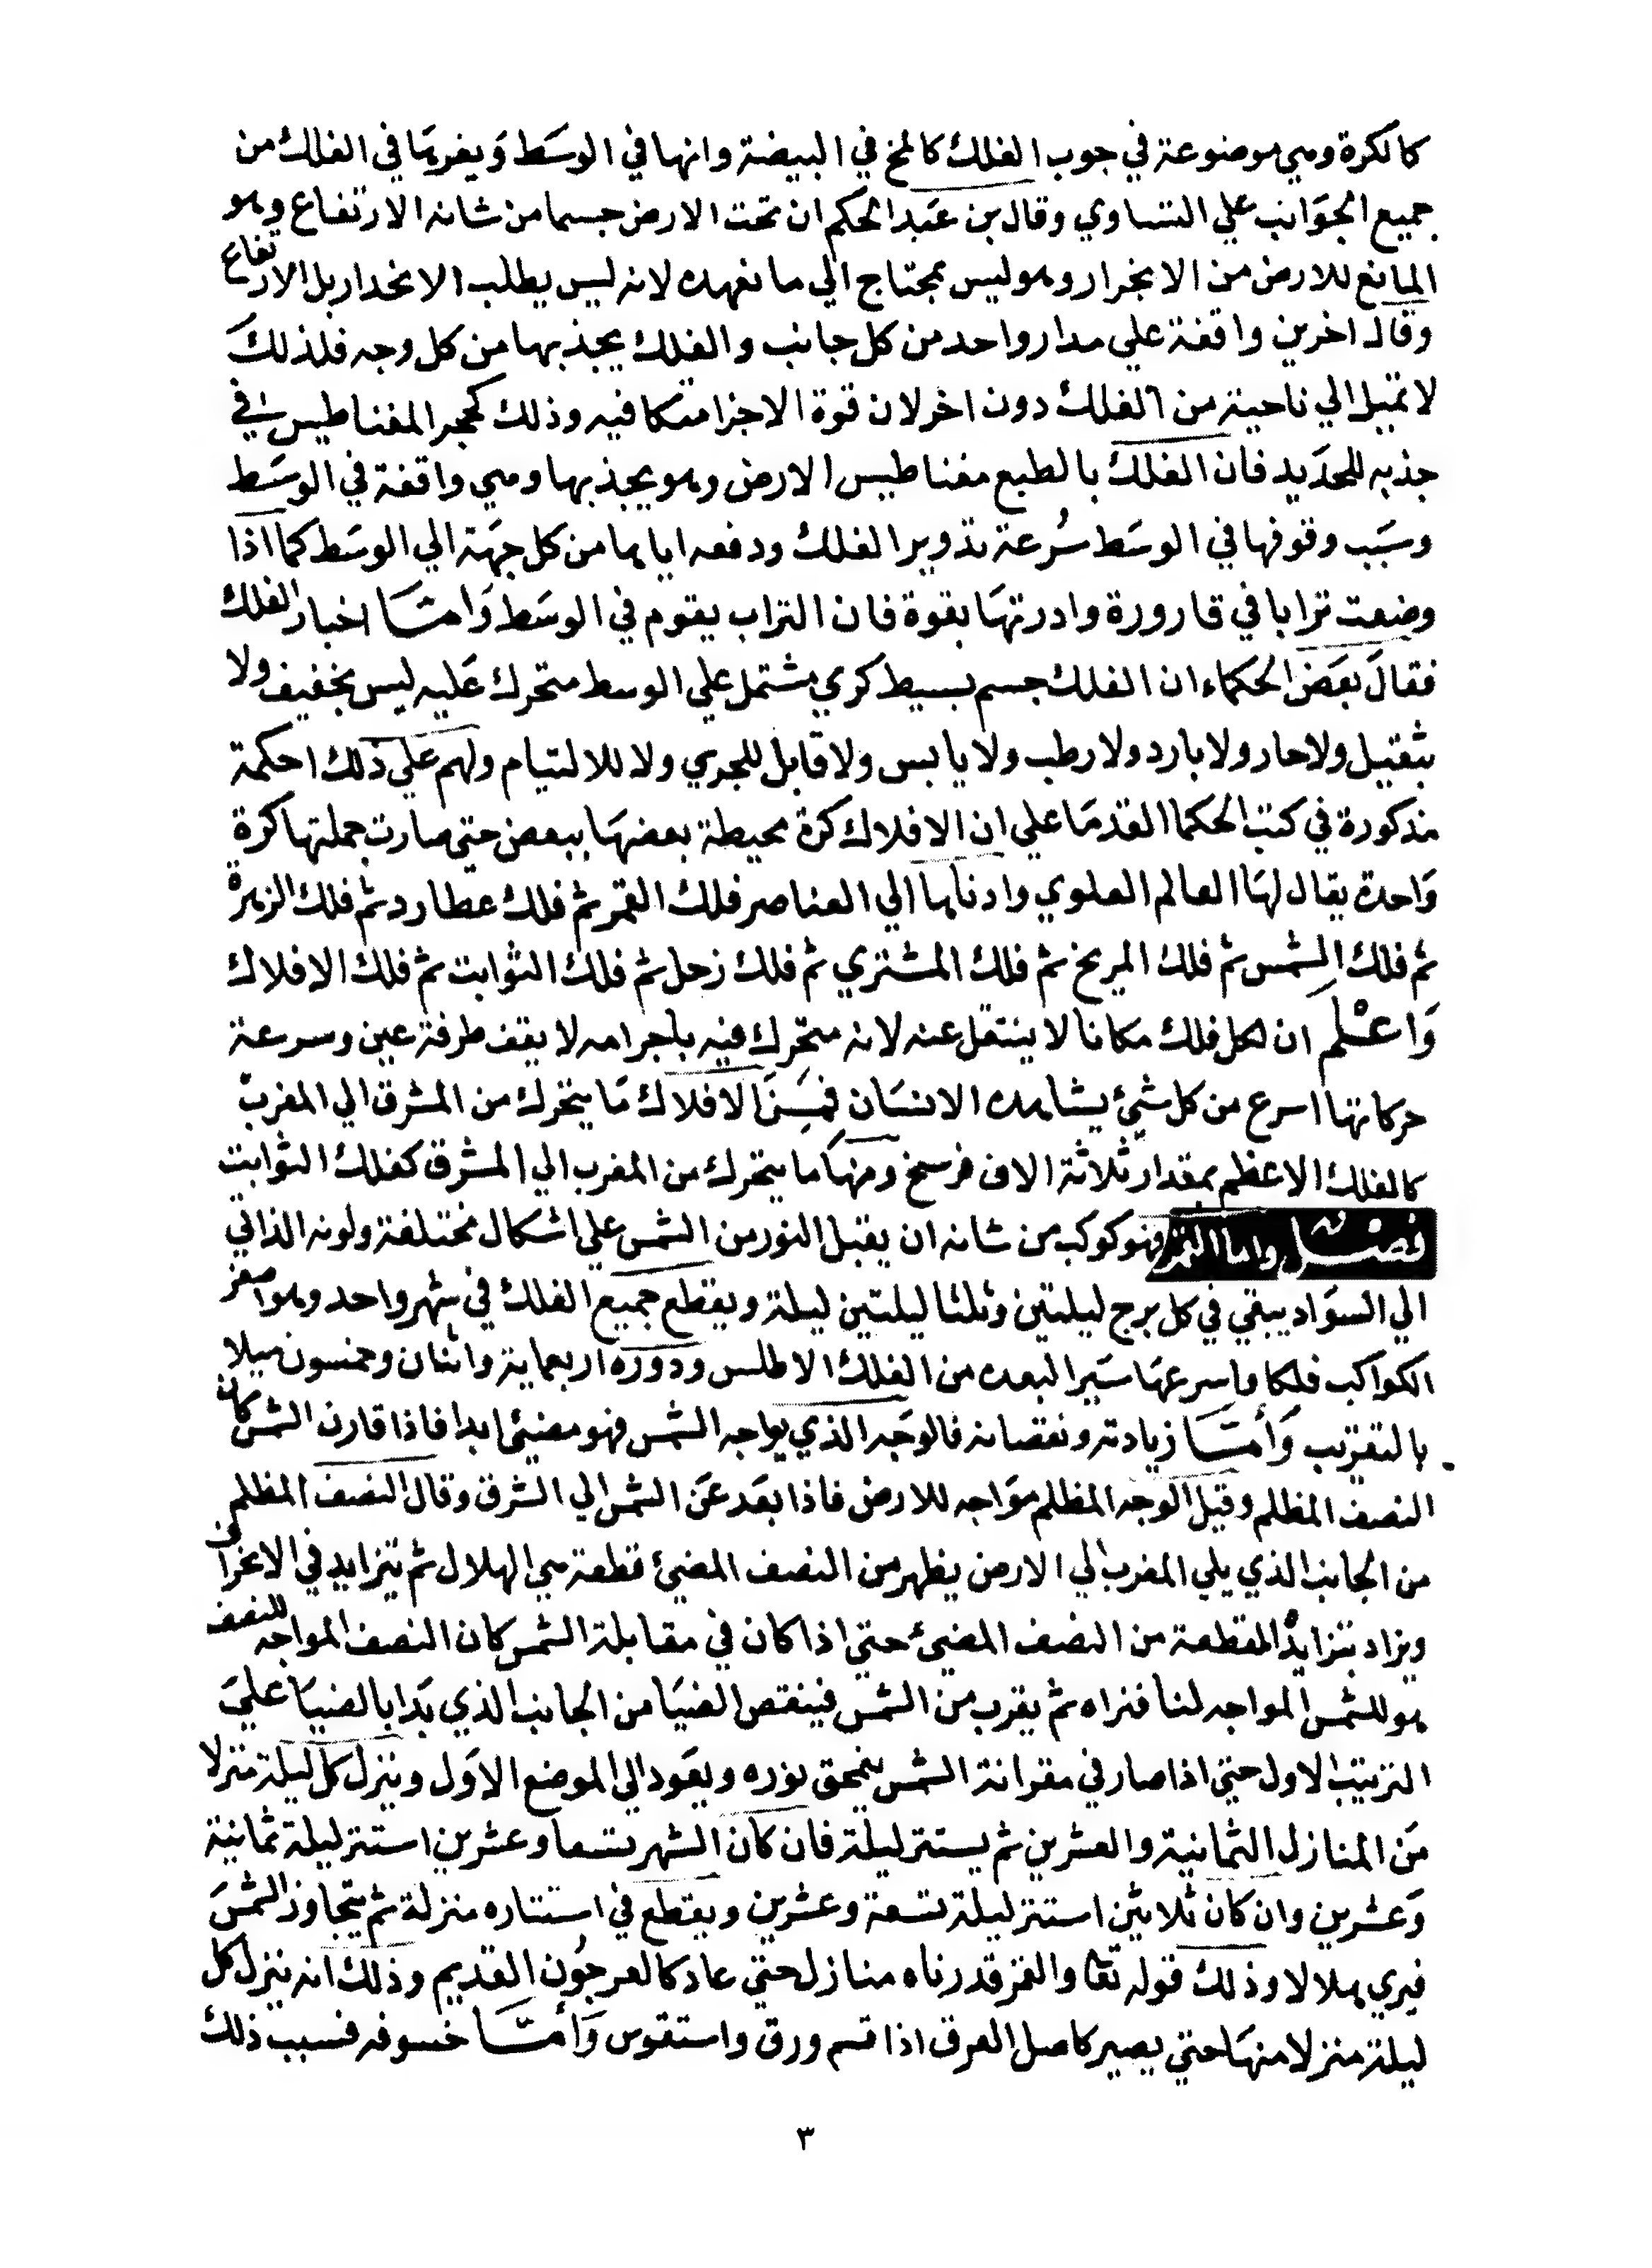 كالكرة وهي موضوعة في جوب الفلك كالمخ في البيضة وانها في الوسط وبعرها في الفلك من
جميع الجوانب علي التساوي وقال بن عبد الحكم ان تحت الارض جسما من شانه الارتفاع وهو
المانع للارض من الانجرار وهو ليس بمحتاج الي ما نعهده لانه ليس يطلب الانحدار بل الارتفاع
وقال اخرين واقفة علي مدار واحد من كل جانب والفلك يجذبها من كل وجه فلذلك
لا تميل الي ناحية من الفلك دون اخر لان قوة الاجزا متكافيه وذلك كحجر المغناطيس في
جذبه للحديد فان الفلك بالطبع مغناطيس الارض وهو يجذبها وهي واقفة في الوسط
وسبب وقوفها في الوسط سرعة تدوير الفلك ودفعه اياها من كل جهة الي الوسط كما اذا
وضعت ترابا في قارورة وادرتها بقوة فان التراب يقوم في الوسط وامـا اخبار الفلك
فقال بعض الحكماء ان الفلك جسم بسيط كري مشتمل علي الوسط متحرك عليه ليس بخفيف ولا
بثقيل ولا حار ولا بارد ولا رطب ولا يابس ولا قابل للجري ولا للالتيام ولهم علي ذلك احكمة
مذكورة في كتب الحكما القدما علي ان الافلاك كرة محيطة بعضها ببعض حتي صارت جملتها كرة
واحدة يقال لها العالم العلوي وادناها الي العناصر فلك القمر ثم فلك عطارد ثم فلك الزهرة
ثم فلك الشمس ثم فلك المريخ ثم فلك المشتري ثم فلك زحل ثم فلك الثوابت ثم فلك الافلاك
واعلم ان لكل فلك مكانا لا ينتقل عنه لانه متحرك فيه باجرامه لا يقف طرفة عين وسرعة
حركاتها اسرع من كل شيئ يشاهده الانسان فمن الافلاك ما يتحرك من المشرق الي المغرب
كالفلك الاعظم بمقدار ثلاثة الاف فرسخ ومنها ما يتحرك من المغرب الي المشرق كفلك الثوابت
فصل واما القمر فهو كوكب من شانه ان يقبل النور من الشمس علي اشكال مختلفة ولونه الذاتي
الي السواد يبقي في كل برج ليلتين وثلثا ليلتين ليلة ويقطع جميع الفلك في شهر واحد وهو اصغر
الكواكب فلكا واسرعها سيرا لبعده من الفلك الاطلس ودوره اربعماية واثنان وخمسون ميلا
بالتقريب وأمـا زيادته ونقصانه فالوجه الذي يواجه الشمس فهو مضيئ ابدا فاذا قارن الشمس كان
النصف المظلم وقيل الوجه المظلم مواجه للارض فاذا بعد عن الشمس الي الشرق وقال النصف المظلم
من الجانب الذي يلي المغرب الي الارض يظهر من النصف المضيئ قطعة هي الهلال ثم يتزايد في الانحراف
ويزاد بتزايد القطعة من النصف المضيئ حتي اذا كان في مقابلة الشمس كان النصف المواجه للنصف
هو للشمس المواجه لنا فنراه ثم يقرب من الشمس فينقص الضيا من الجانب الذي بدا بالضيا علي
الترتيب الاول حتي اذا صار في مقرانة الشمس ينمحق نوره ويعود الي الموضع الاول وينزل كل ليلة منزلا
من المنازل الثمانية والعشرين ثم يستتر ليلة فان كان الشهر تسعا وعشرين استتر ليلة ثمانية
وعشرين وان كان ثلاثين استتر ليلة تسعة وعشرين ويقطع في استتاره منزلة ثم يتجاوز الشمس
فيري هلالا وذلك قوله تعا والقمر قدرناه منازل حتي عاد كالعرجون القديم وذلك انه ينزل كل
ليلة منزلا منها حتي يصير كاصل العرق اذا قسم ورق واستقوس وأمـا خسوفه فسبب ذلك
٣